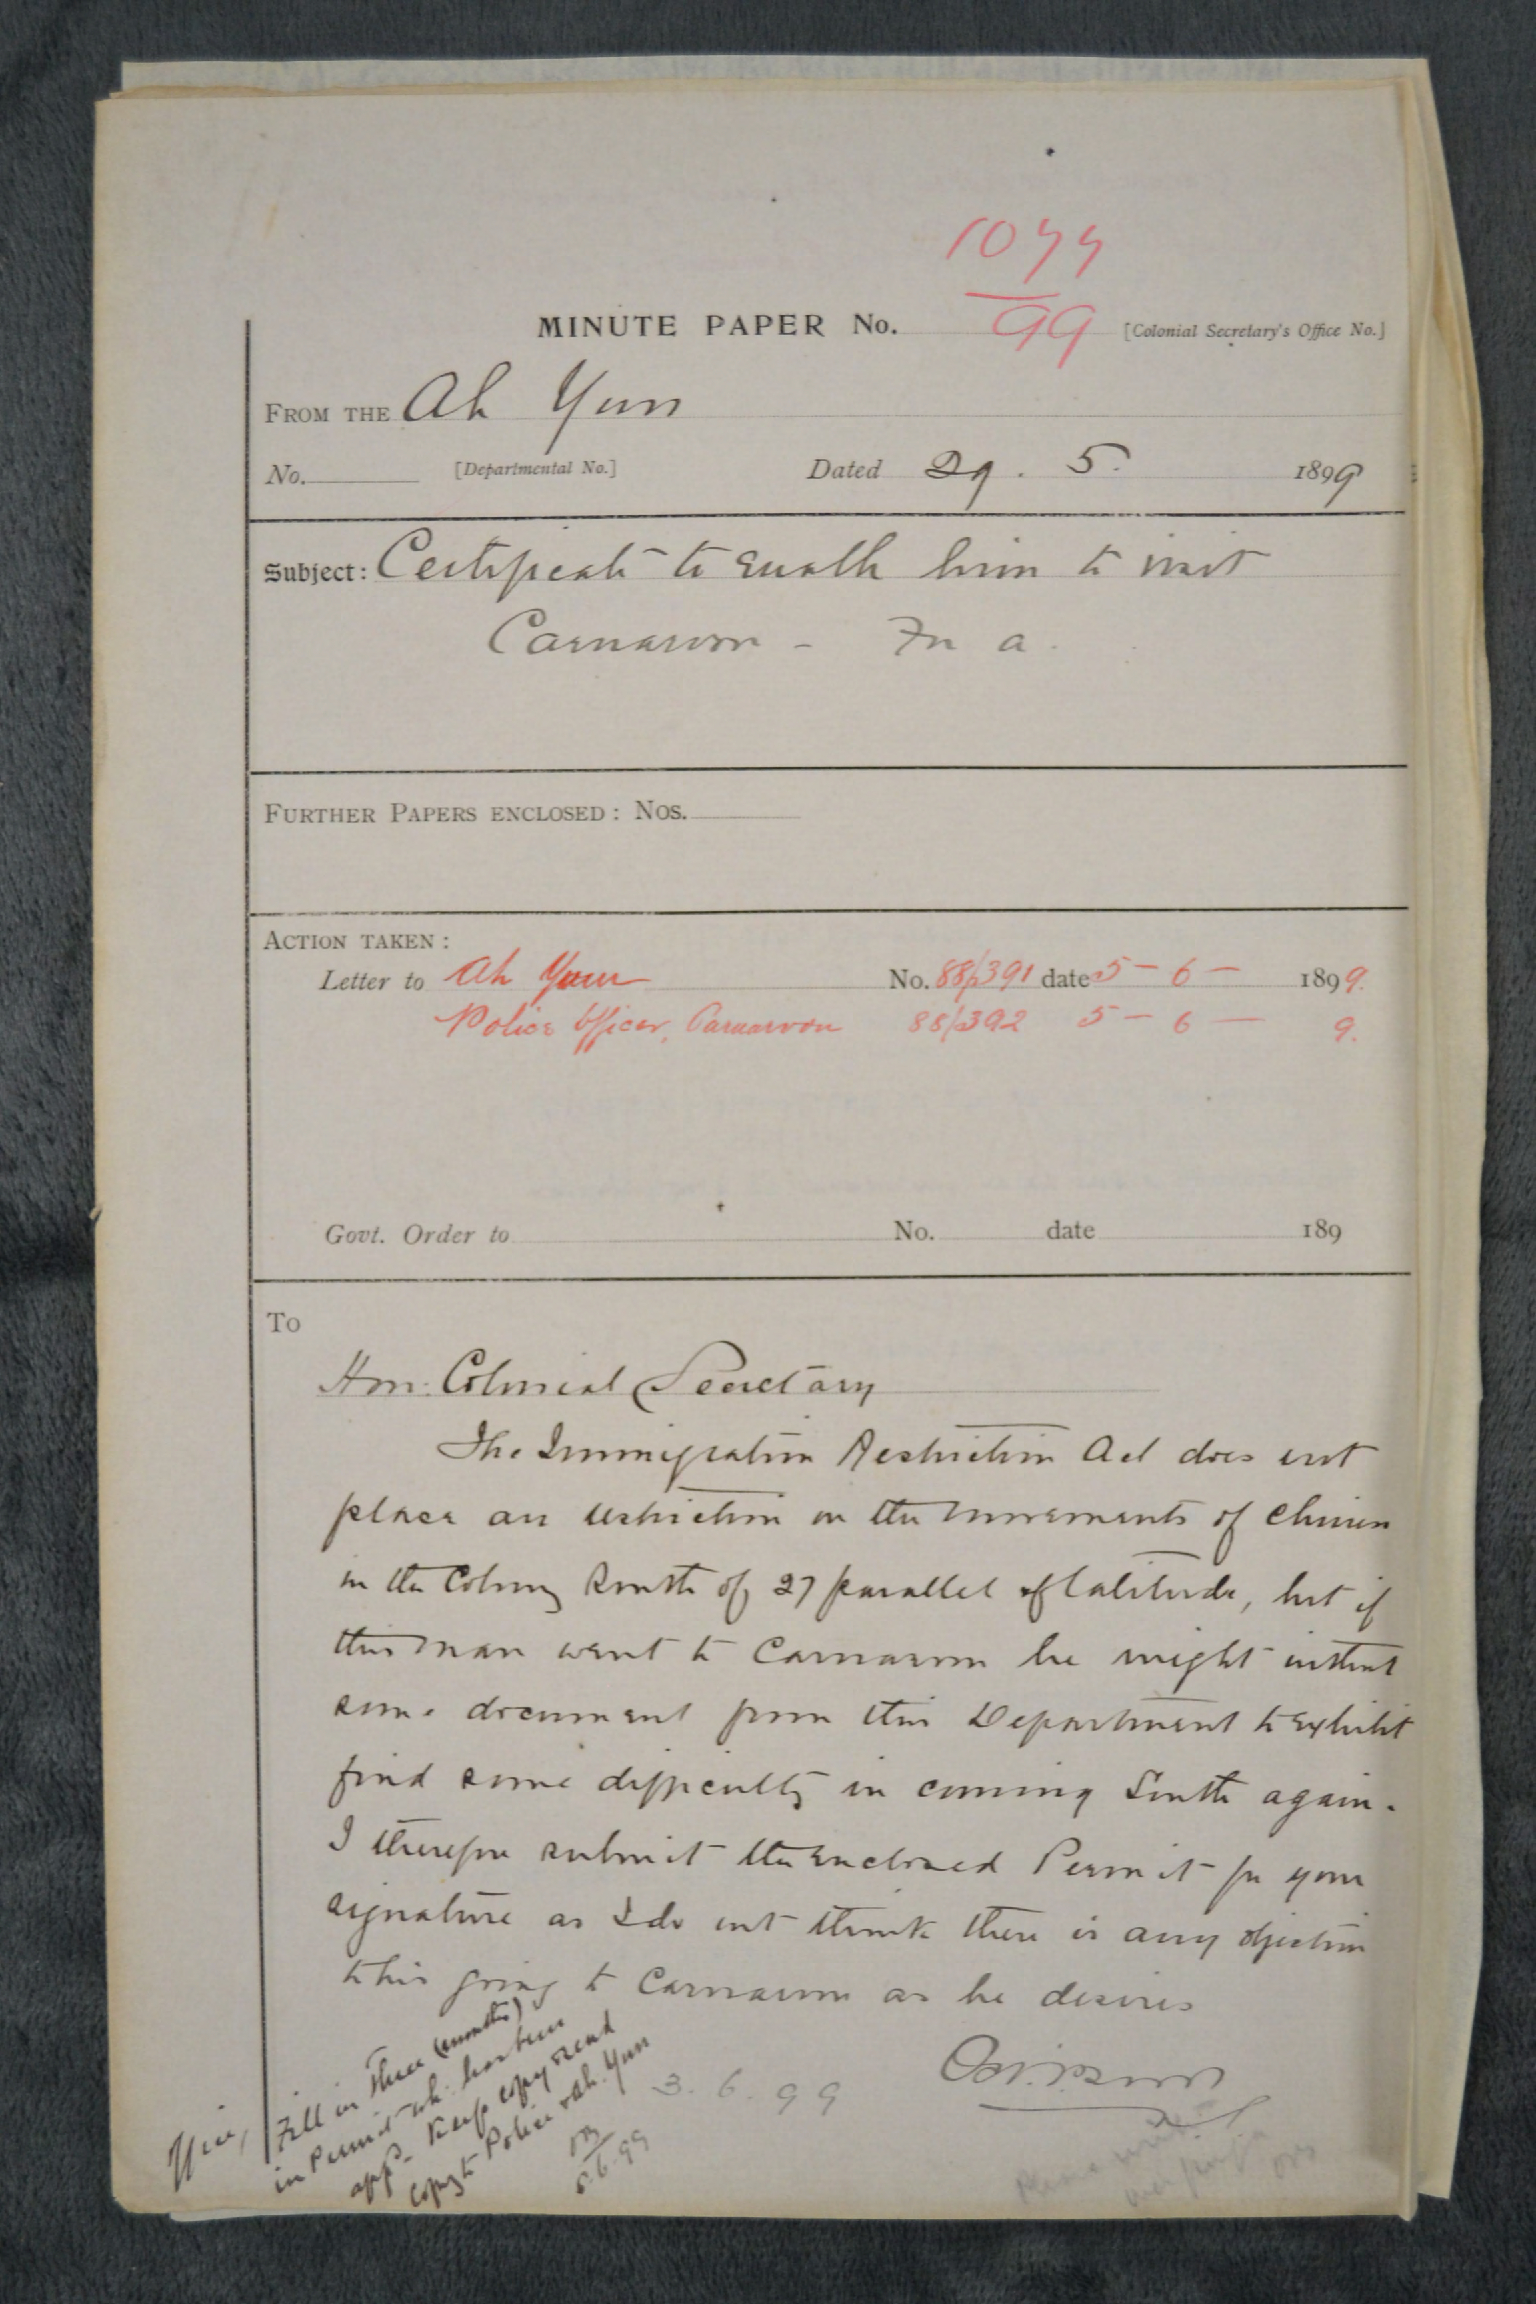 1077
99
MINUTE PAPER No. [Colonial Secretary's Office No.]
FROM THE Ah Yun
No. [Departmental No.] Dated 29. 5. 1899
Subject: Certificate to enable him to visit
Carnarvon - In a.
FURTHER PAPERS ENCLOSED: Nos.
ACTION TAKEN:
Letter to Ah Yum No. 88/391 date 5 - 6 - 1899.
Police Officer, Carnarvon 88/392 5 - 6 - 9.
Govt. Order to No. date 189
To
Hon: Colonial Secretary
The Immigration Restriction Act does not
place any restriction on the movements of Chinese
in the Colony South of 27 parallel of latitude, but if
this man went to Carnarvon he might without
some document from this Department to exhibit
find some difficulty in coming South again.
I therefore submit the enclosed Permit for your
signature as I do not think there is any objection
to his going to Carnarvon as he desires
3. 6. 99
Fill in three (months)
in Permit wh: has been
appd. Keep copy & send
copy to Police & Ah. Yun
5.6.99